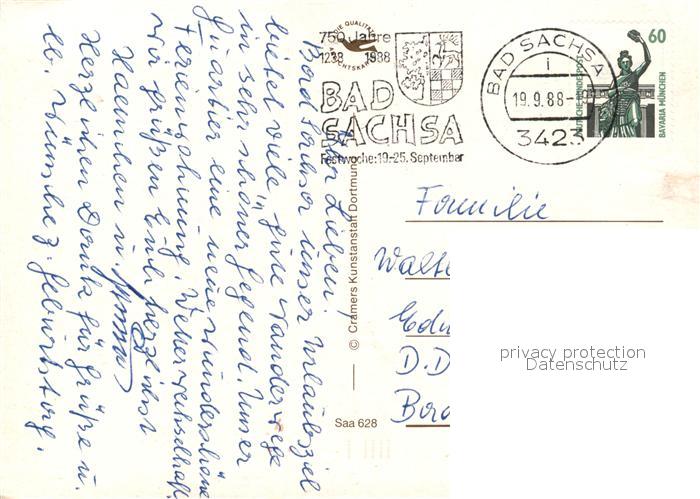 750 Jahre
1238 1988
BAD
SACHSA
Festwoche: 19.-25. September
BAD SACHSA
i
19.9.88-
3423
60
DEUTSCHE BUNDESPOST
BAVARIA MÜNCHEN
Ihr Lieben!
Bad Sachsa unser Urlaubsziel
bietet viele gute Wanderwege
in sehr schöner Gegend. Unser
Quartier eine neue wunderschöne
Ferienwohnung. Wetter wechselhaft.
Wir grüßen Euch herzlichst
Hannchen u.
Herzlichen Dank für Grüße u.
lb. Wünsche z. Geburtstag.
© Cramers Kunstanstalt Dortmund
Saa 628
Familie
Walt
Edu
D.D
Bor
privacy protection
Datenschutz